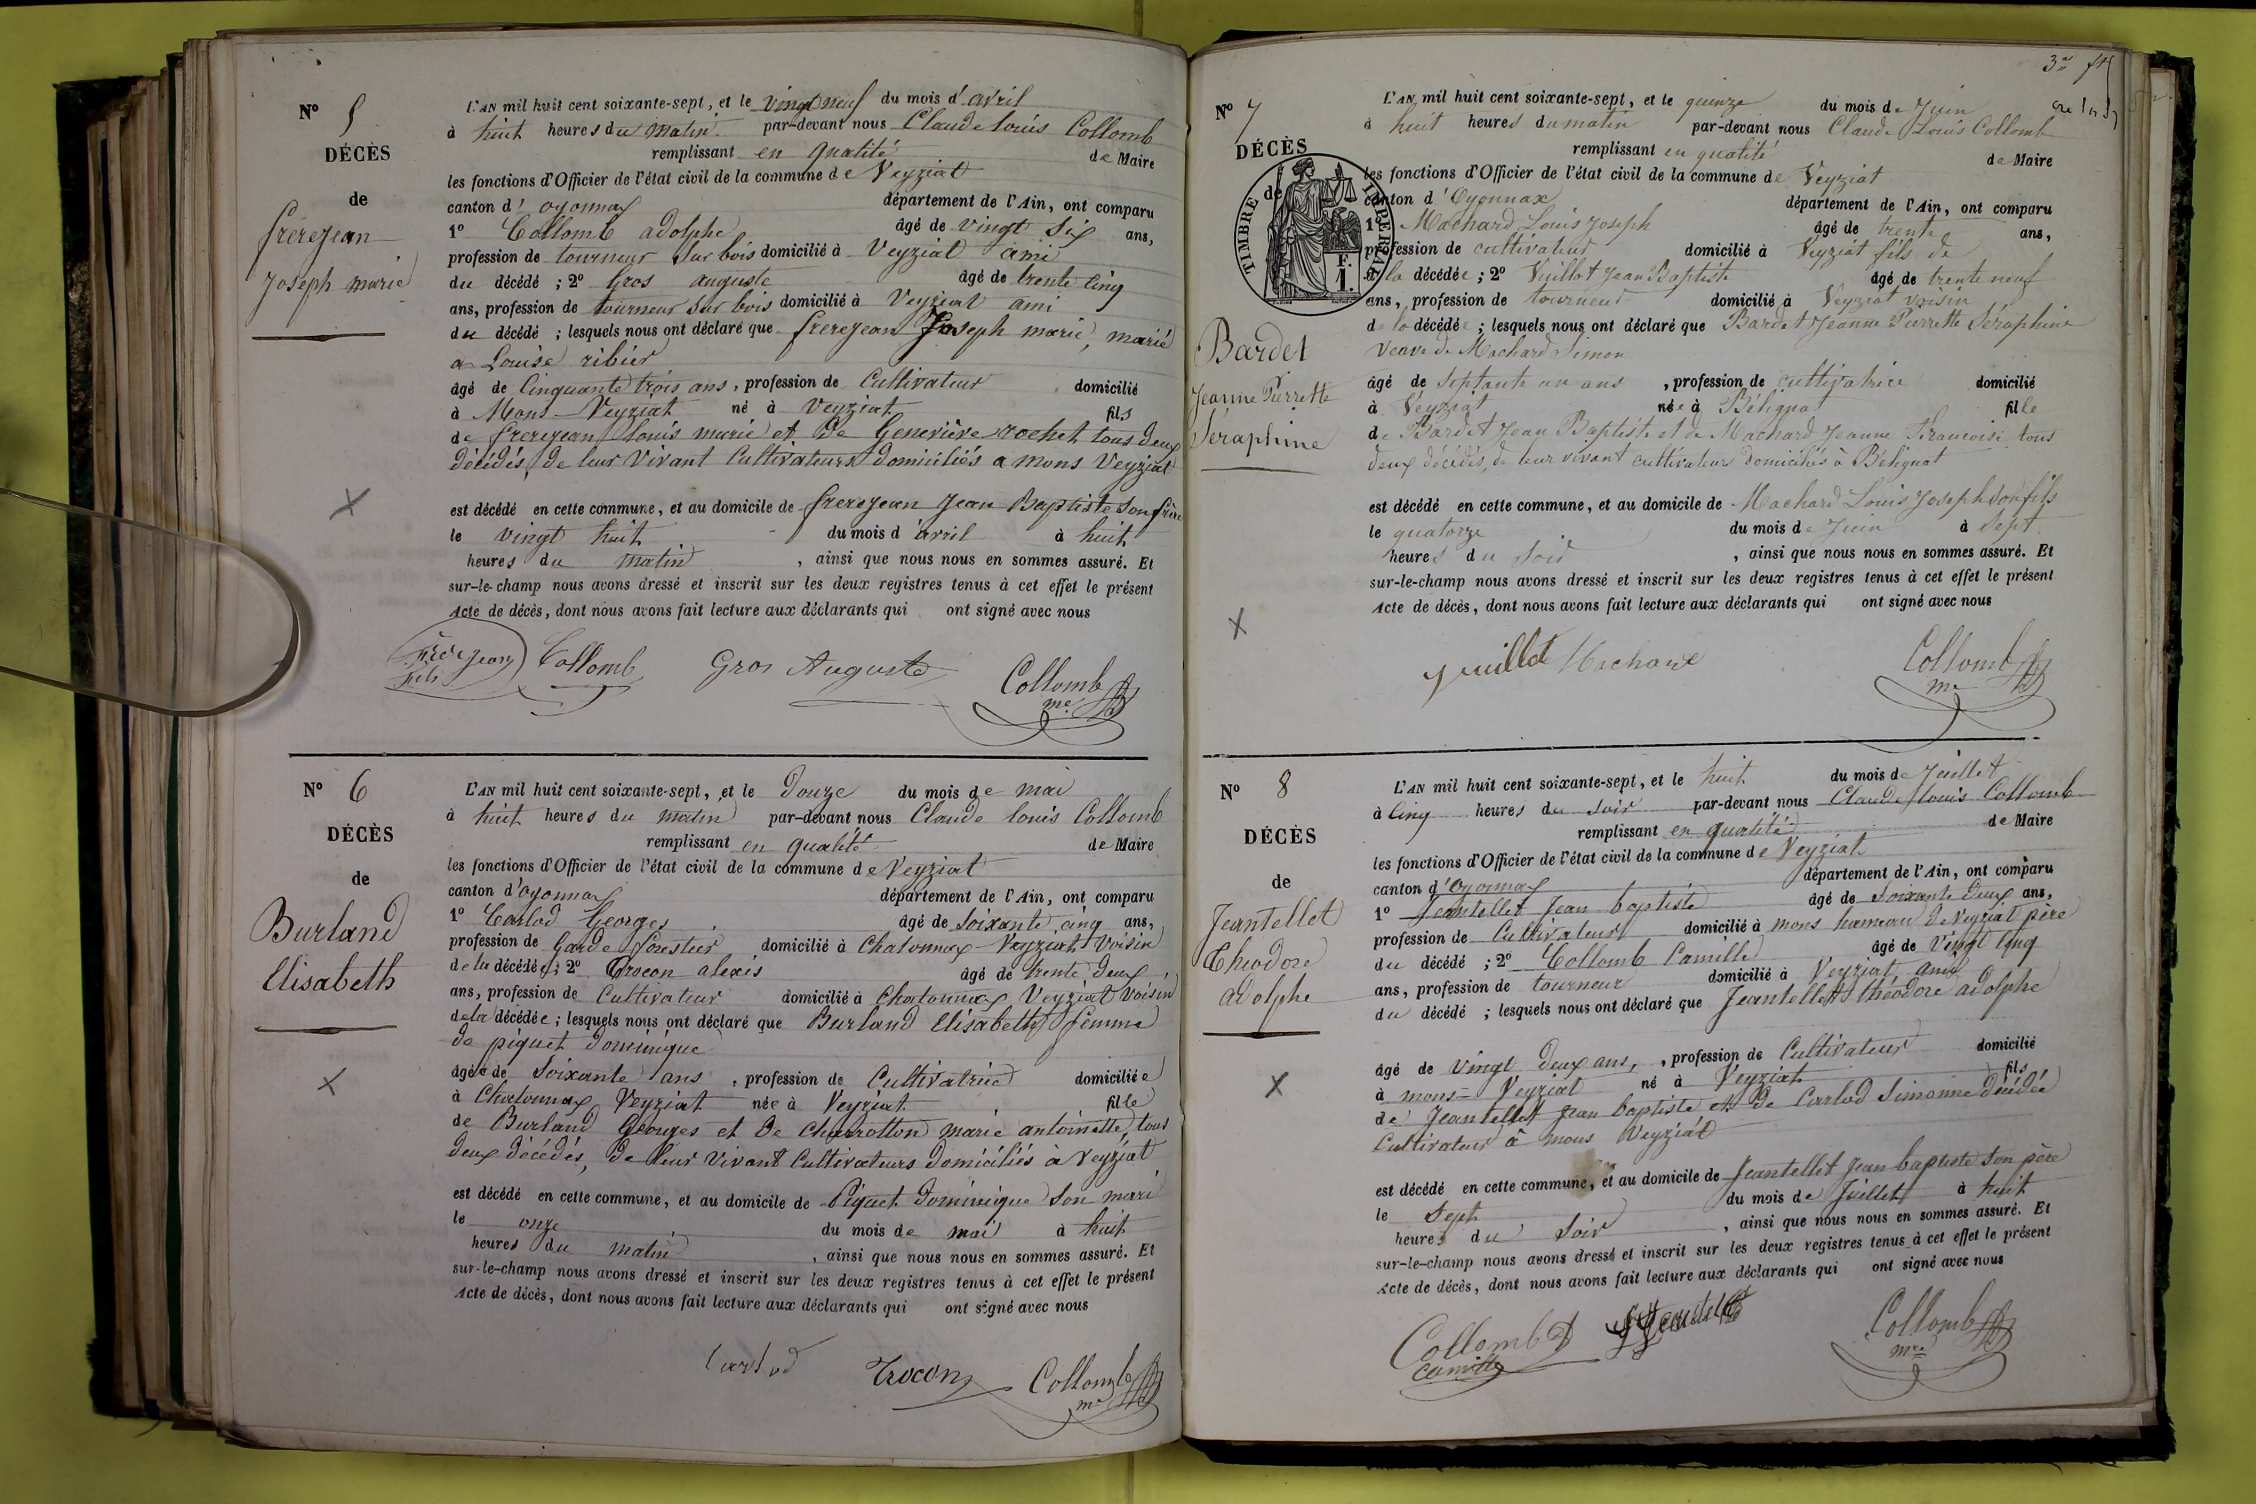 N° 5
DÉCÈS
de
frerejean
Joseph marie
L'AN mil huit cent soixante-sept, et le vingt neuf du mois d'avril
à huit heures du matin par-devant nous Claude Louis Collomb
remplissant en qualité de Maire
les fonctions d'Officier de l'état civil de la commune de Veyziat
canton d'oyonnax département de l'Ain, ont comparu
1° Collomb adolphe âgé de vingt six ans,
profession de tourneur sur bois domicilié à Veyziat ami
du décédé ; 2° Gros auguste âgé de trente cinq
ans, profession de tourneur sur bois domicilié à Veyziat ami
du décédé ; lesquels nous ont déclaré que frerejean Joseph marie, marié
a Louise ribier
âgé de Cinquante trois ans, profession de Cultivateur domicilié
à Mons Veyziat né à Veyziat fils
de frerejean Louis marie et de Geneviève rochet tous deux
décédés, de leur vivant Cultivateurs domiciliés a mons Veyziat
est décédé en cette commune, et au domicile de frerejean Jean Baptiste son frère
le vingt huit du mois d'avril à huit
heures du matin, ainsi que nous nous en sommes assuré. Et
sur-le-champ nous avons dressé et inscrit sur les deux registres tenus à cet effet le présent
Acte de décès, dont nous avons fait lecture aux déclarants qui ont signé avec nous
Frèrejean fils Collomb Gros Auguste Collomb me
N° 6
DÉCÈS
de
Burland
Elisabeth
L'AN mil huit cent soixante-sept, et le douze du mois de mai
à huit heures du matin par-devant nous Claude louis Collomb
remplissant en qualité de Maire
les fonctions d'Officier de l'état civil de la commune de Veyziat
canton d'oyonnax département de l'Ain, ont comparu
1° Carlod Georges âgé de soixante cinq ans,
profession de Garde forestier domicilié à Chatonnax Veyziat voisin
de la décédée ; 2° Trocon alexis âgé de trente deux
ans, profession de Cultivateur domicilié à Chatonnax Veyziat voisin
de la décédée ; lesquels nous ont déclaré que Burland Elisabeth femme
de piquet dominique
âgée de soixante ans, profession de Cultivatrice domiciliée
à Chatonnax Veyziat née à Veyziat fille
de Burland Georges et de Charrotton marie antoinette, tous
deux décédés, de leur vivant Cultivateurs domiciliés à Veyziat
est décédé en cette commune, et au domicile de Piquet dominique son mari
le onze du mois de mai à huit
heures du matin, ainsi que nous nous en sommes assuré. Et
sur-le-champ nous avons dressé et inscrit sur les deux registres tenus à cet effet le présent
Acte de décès, dont nous avons fait lecture aux déclarants qui ont signé avec nous
Carlod Trocon Collomb me
N° 7
DÉCÈS
de
TIMBRE IMPERIAL
F.
1.
Bardet
Jeanne Pierrette
Séraphine
L'AN mil huit cent soixante-sept, et le quinze du mois de Juin
à huit heures du matin par-devant nous Claude Louis Collomb
remplissant en qualité de Maire
les fonctions d'Officier de l'état civil de la commune de Veyziat
canton d'Oyonnax département de l'Ain, ont comparu
1° Machard Louis Joseph âgé de trente ans,
profession de cultivateur domicilié à Veyziat fils de
de la décédée ; 2° Vuillot Jean Baptiste âgé de trente neuf
ans, profession de tourneur domicilié à Veyziat voisin
de la décédée ; lesquels nous ont déclaré que Bardet Jeanne Pierrette Séraphine
veuve de Machard Simon
âgé de septante un ans, profession de cultivatrice domicilié
à Veyziat née à Bélignat fille
de Bardet Jean Baptiste et de Machard Jeanne Françoise tous
deux décédés, de leur vivant cultivateurs domiciliés à Bélignat
est décédé en cette commune, et au domicile de Machard Louis Joseph son fils
le quatorze du mois de Juin à sept
heures du soir, ainsi que nous nous en sommes assuré. Et
sur-le-champ nous avons dressé et inscrit sur les deux registres tenus à cet effet le présent
Acte de décès, dont nous avons fait lecture aux déclarants qui ont signé avec nous
Vuillot Machard Collomb me
N° 8
DÉCÈS
de
Jeantellet
Théodore
adolphe
L'AN mil huit cent soixante-sept, et le huit du mois de Juillet
à Cinq heures du soir par-devant nous Claude louis Collomb
remplissant en qualité de Maire
les fonctions d'Officier de l'état civil de la commune de Veyziat
canton d'oyonnax département de l'Ain, ont comparu
1° Jeantellet Jean baptiste âgé de soixante deux ans,
profession de Cultivateur domicilié à mons hameau de Veyziat père
du décédé ; 2° Collomb Camille âgé de vingt cinq
ans, profession de tourneur domicilié à Veyziat ami
du décédé ; lesquels nous ont déclaré que Jeantellet théodore adolphe
âgé de vingt deux ans, profession de Cultivateur domicilié
à mons - Veyziat né à Veyziat fils
de Jeantellet Jean baptiste et de Carlod Simonne décédée
Cultivateur à mons Veyziat
est décédé en cette commune, et au domicile de Jeantellet Jean baptiste son père
le sept du mois de Juillet à huit
heures du soir, ainsi que nous nous en sommes assuré. Et
sur-le-champ nous avons dressé et inscrit sur les deux registres tenus à cet effet le présent
Acte de décès, dont nous avons fait lecture aux déclarants qui ont signé avec nous
Collomb Camille Jeantellet Collomb me